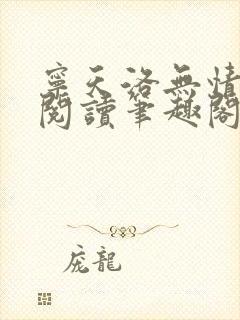 寧天洛無情
閱讀筆趣閣
庞龍